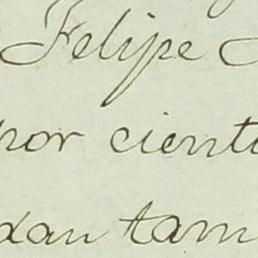 Felipe
por cient
dan tam